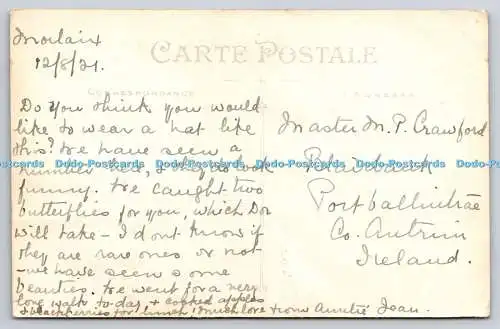 Morlaix
12/8/21.
CARTE POSTALE
CORRESPONDANCE
ADRESSE
Do you think you would
like to wear a hat like
this? We have seen a
number &
funny. We caught two
butterflies for you, which Dor
will take - I dont know if
they are rare ones or not
- we have seen some
beauties. We went for a very
long walk to-day, & cooked apples
& blackberries for lunch. Much love from Auntie Jean.
Master M. P. Crawford
Portballintrae
Co. Antrim
Ireland.
Dodo-Postcards Dodo-Postcards Dodo-Postcards Dodo-Postcards